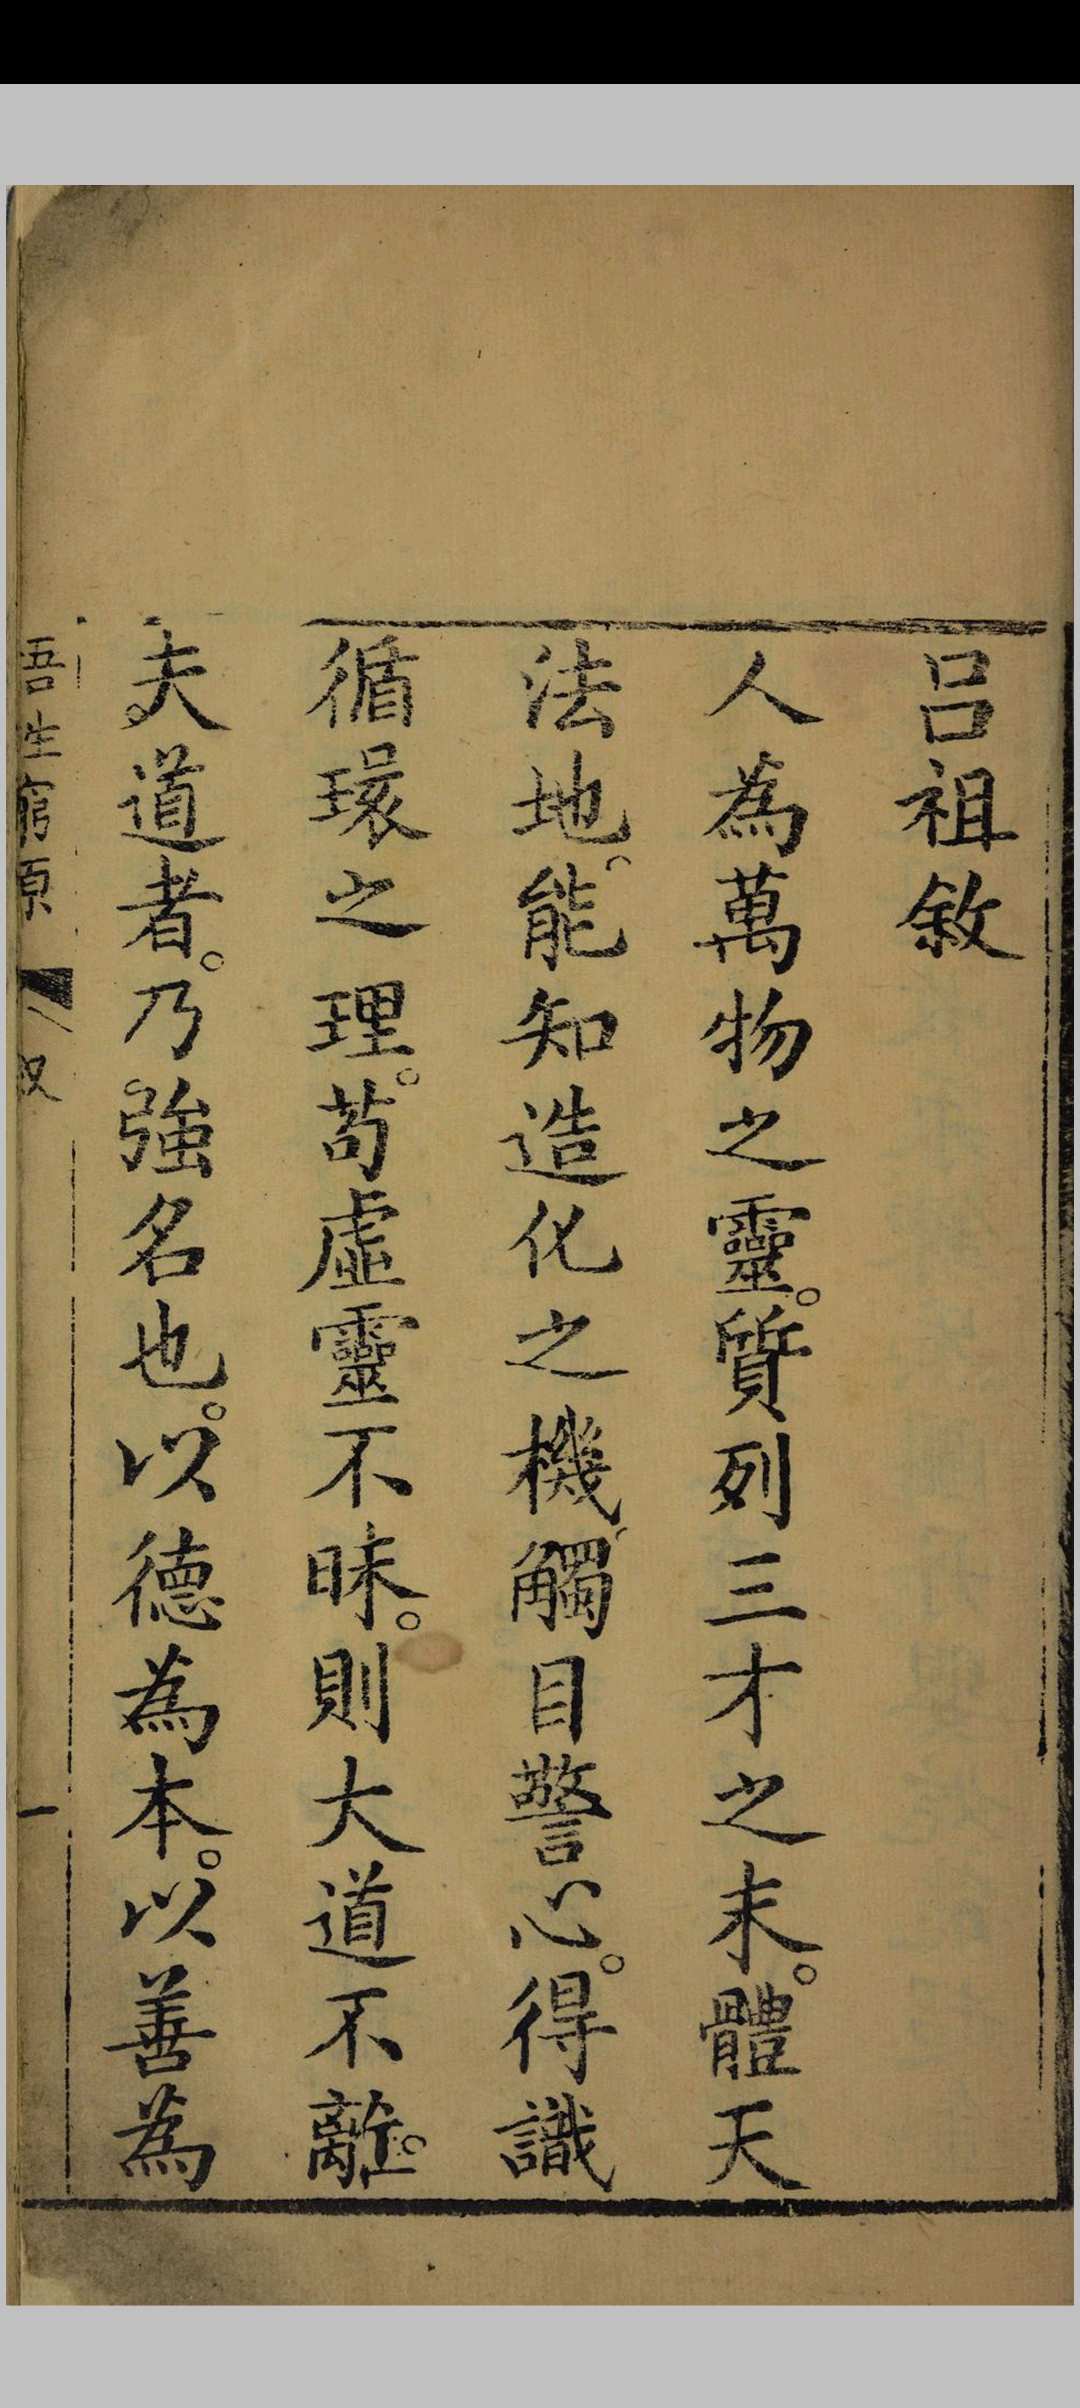 吕祖敘
人為萬物之靈。質列三才之末。體天
法地。能知造化之機。觸目警心。得識
循環之理。苟虛靈不昧。則大道不離。
夫道者。乃強名也。以德為本。以善為
吾生窟原 敘 一